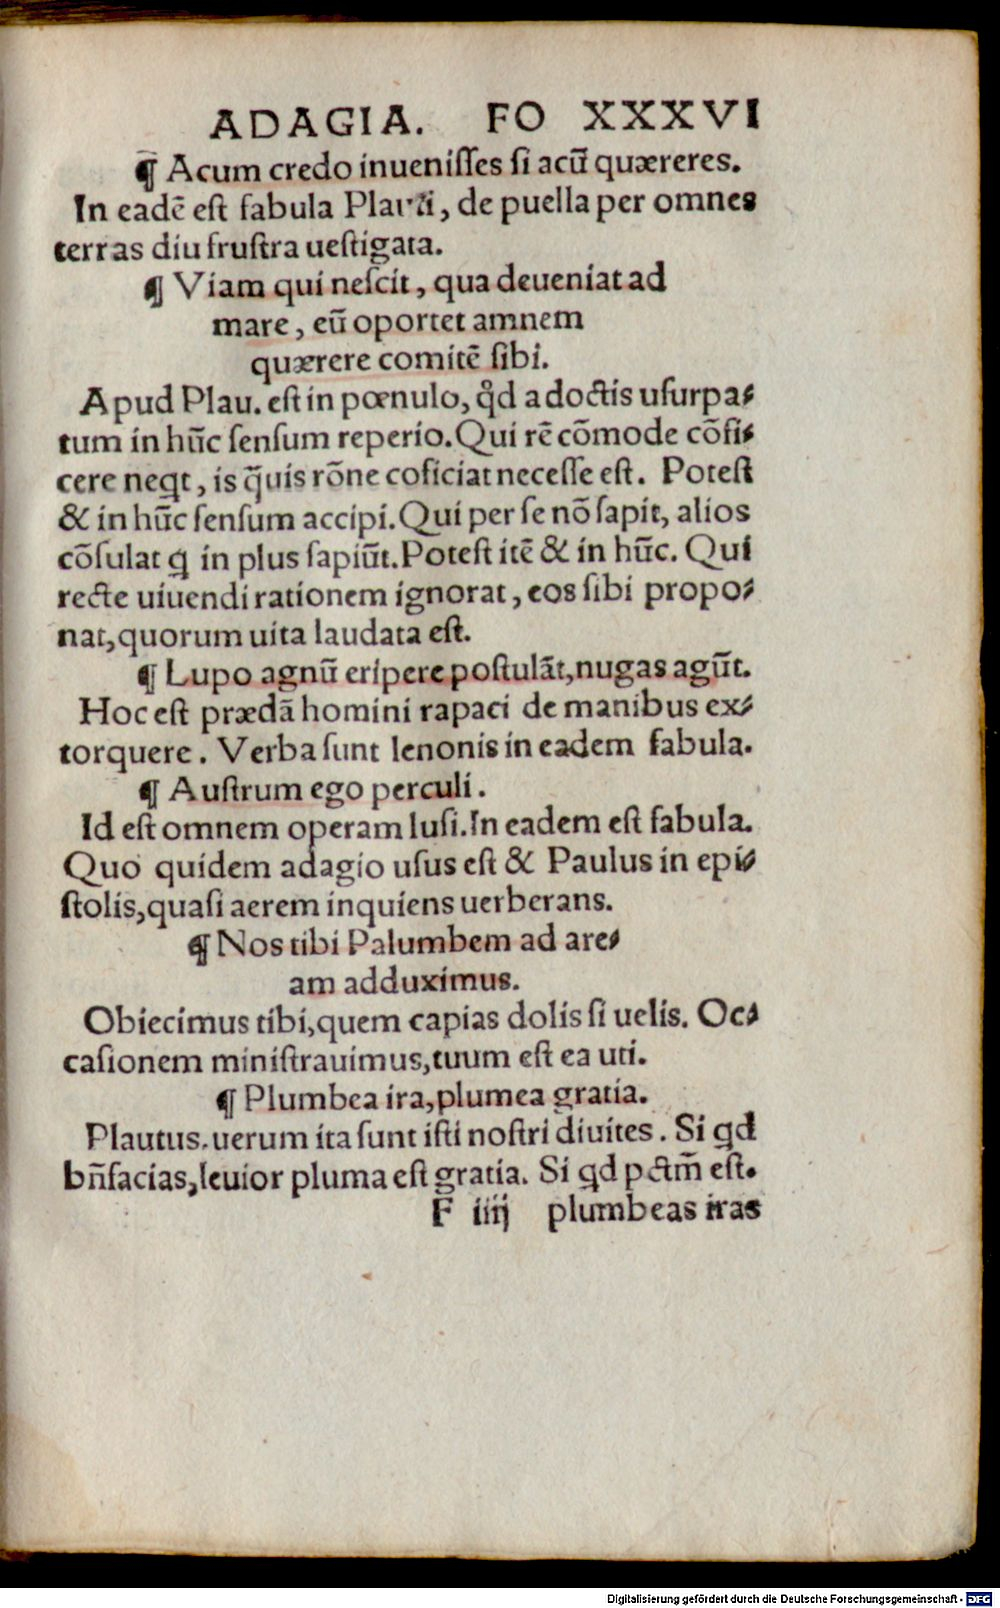 ADAGIA. FO XXXVI
¶ Acum credo inueniſſes ſi acū quæreres.
In eadē eſt fabula Plauti, de puella per omnes
terras diu fruſtra ueſtigata.
¶ Viam qui neſcit, qua deueniat ad
mare, eū oportet amnem
quærere comitē ſibi.
Apud Plau. eſt in pœnulo, qd̊ a doctis uſurpa-
tum in hūc ſenſum reperio. Qui rē cōmode cōfi-
cere neqt, is q̄uis rōne coficiat neceſſe eſt. Poteſt
& in hūc ſenſum accipi. Qui per ſe nō ſapit, alios
cōſulat q in plus ſapiūt. Poteſt itē & in hūc. Qui
recte uiuendi rationem ignorat, eos ſibi propo-
nat, quorum uita laudata eſt.
¶ Lupo agnū eripere poſtulāt, nugas agūt.
Hoc eſt prædā homini rapaci de manibus ex-
torquere. Verba ſunt lenonis in eadem fabula.
¶ Auſtrum ego perculi.
Id eſt omnem operam luſi. In eadem eſt fabula.
Quo quidem adagio uſus eſt & Paulus in epi-
ſtolis, quaſi aerem inquiens uerberans.
¶ Nos tibi Palumbem ad are-
am adduximus.
Obiecimus tibi, quem capias dolis ſi uelis. Oc-
caſionem miniſtrauimus, tuum eſt ea uti.
¶ Plumbea ira, plumea gratia.
Plautus. uerum ita ſunt iſti noſtri diuites. Si qd
bn̄facias, leuior pluma eſt gratia. Si qd pctm̄ eſt.
F iiij plumbeas iras
Digitalisierung gefördert durch die Deutsche Forschungsgemeinschaft - DFG